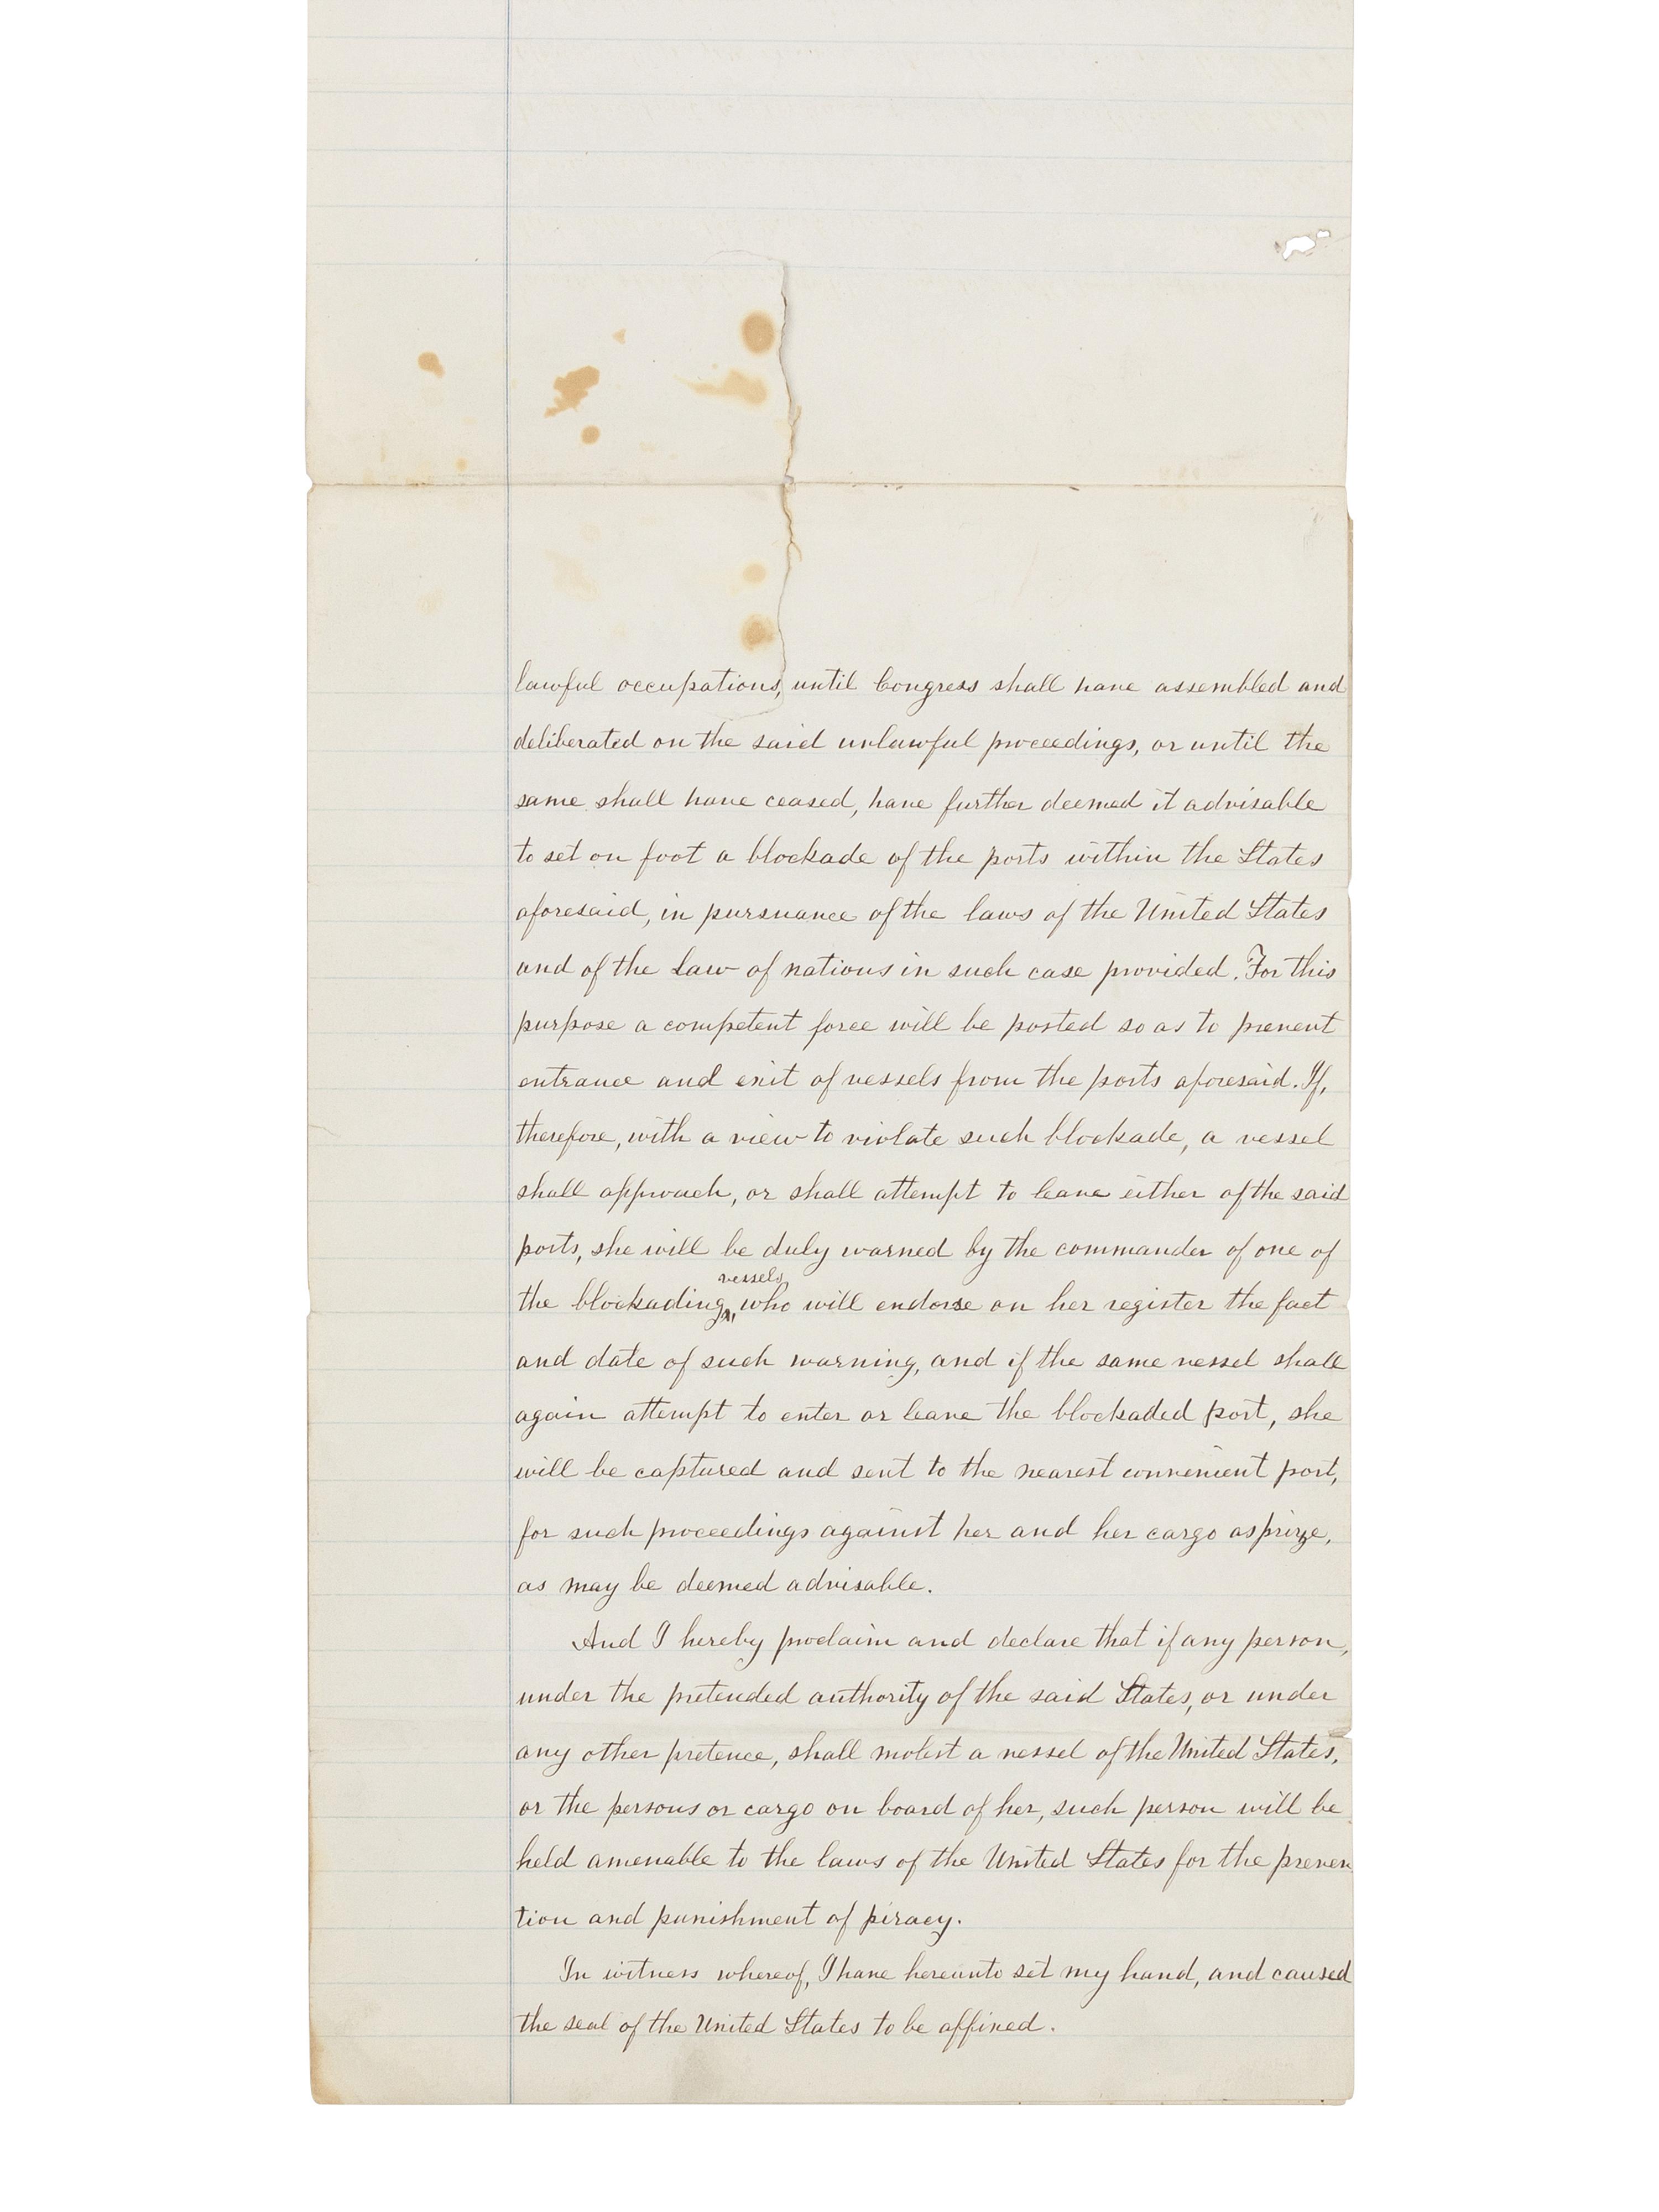 lawful occupations, until Congress shall have assembled and
deliberated on the said unlawful proceedings, or until the
same shall have ceased, have further deemed it advisable
to set on foot a blockade of the ports within the States
aforesaid, in pursuance of the laws of the United States
and of the Law of nations in such case provided. For this
purpose a competent force will be posted so as to prevent
entrance and exit of vessels from the ports aforesaid. If,
therefore, with a view to violate such blockade, a vessel
shall approach, or shall attempt to leave either of the said
ports, she will be duly warned by the commander of one of
vessels
the blockading, who will endorse on her register the fact
and date of such warning, and if the same vessel shall
again attempt to enter or leave the blockaded port, she
will be captured and sent to the nearest convenient port,
for such proceedings against her and her cargo as prize,
as may be deemed advisable.
And I hereby proclaim and declare that if any person,
under the pretended authority of the said States, or under
any other pretence, shall molest a vessel of the United States,
or the persons or cargo on board of her, such person will be
held amenable to the laws of the United States for the preven
tion and punishment of piracy.
In witness whereof, I have hereunto set my hand, and caused
the seal of the United States to be affixed.